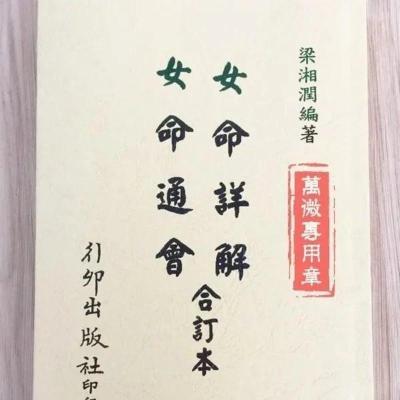 梁湘潤編著
萬微專用章
女命詳解
女命通會
合訂本
行卯出版社印行